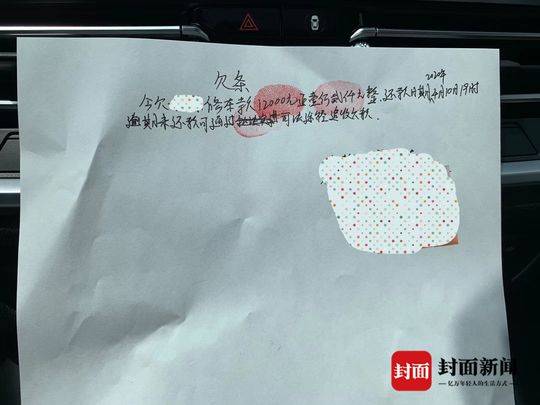 欠条
2020年
今欠 借本款12000元正壹仟贰仟元整,还款日期4月10日19时
逾期未还款可通过 司法途径追收欠款.
封面 封面新闻
亿万年轻人的生活方式